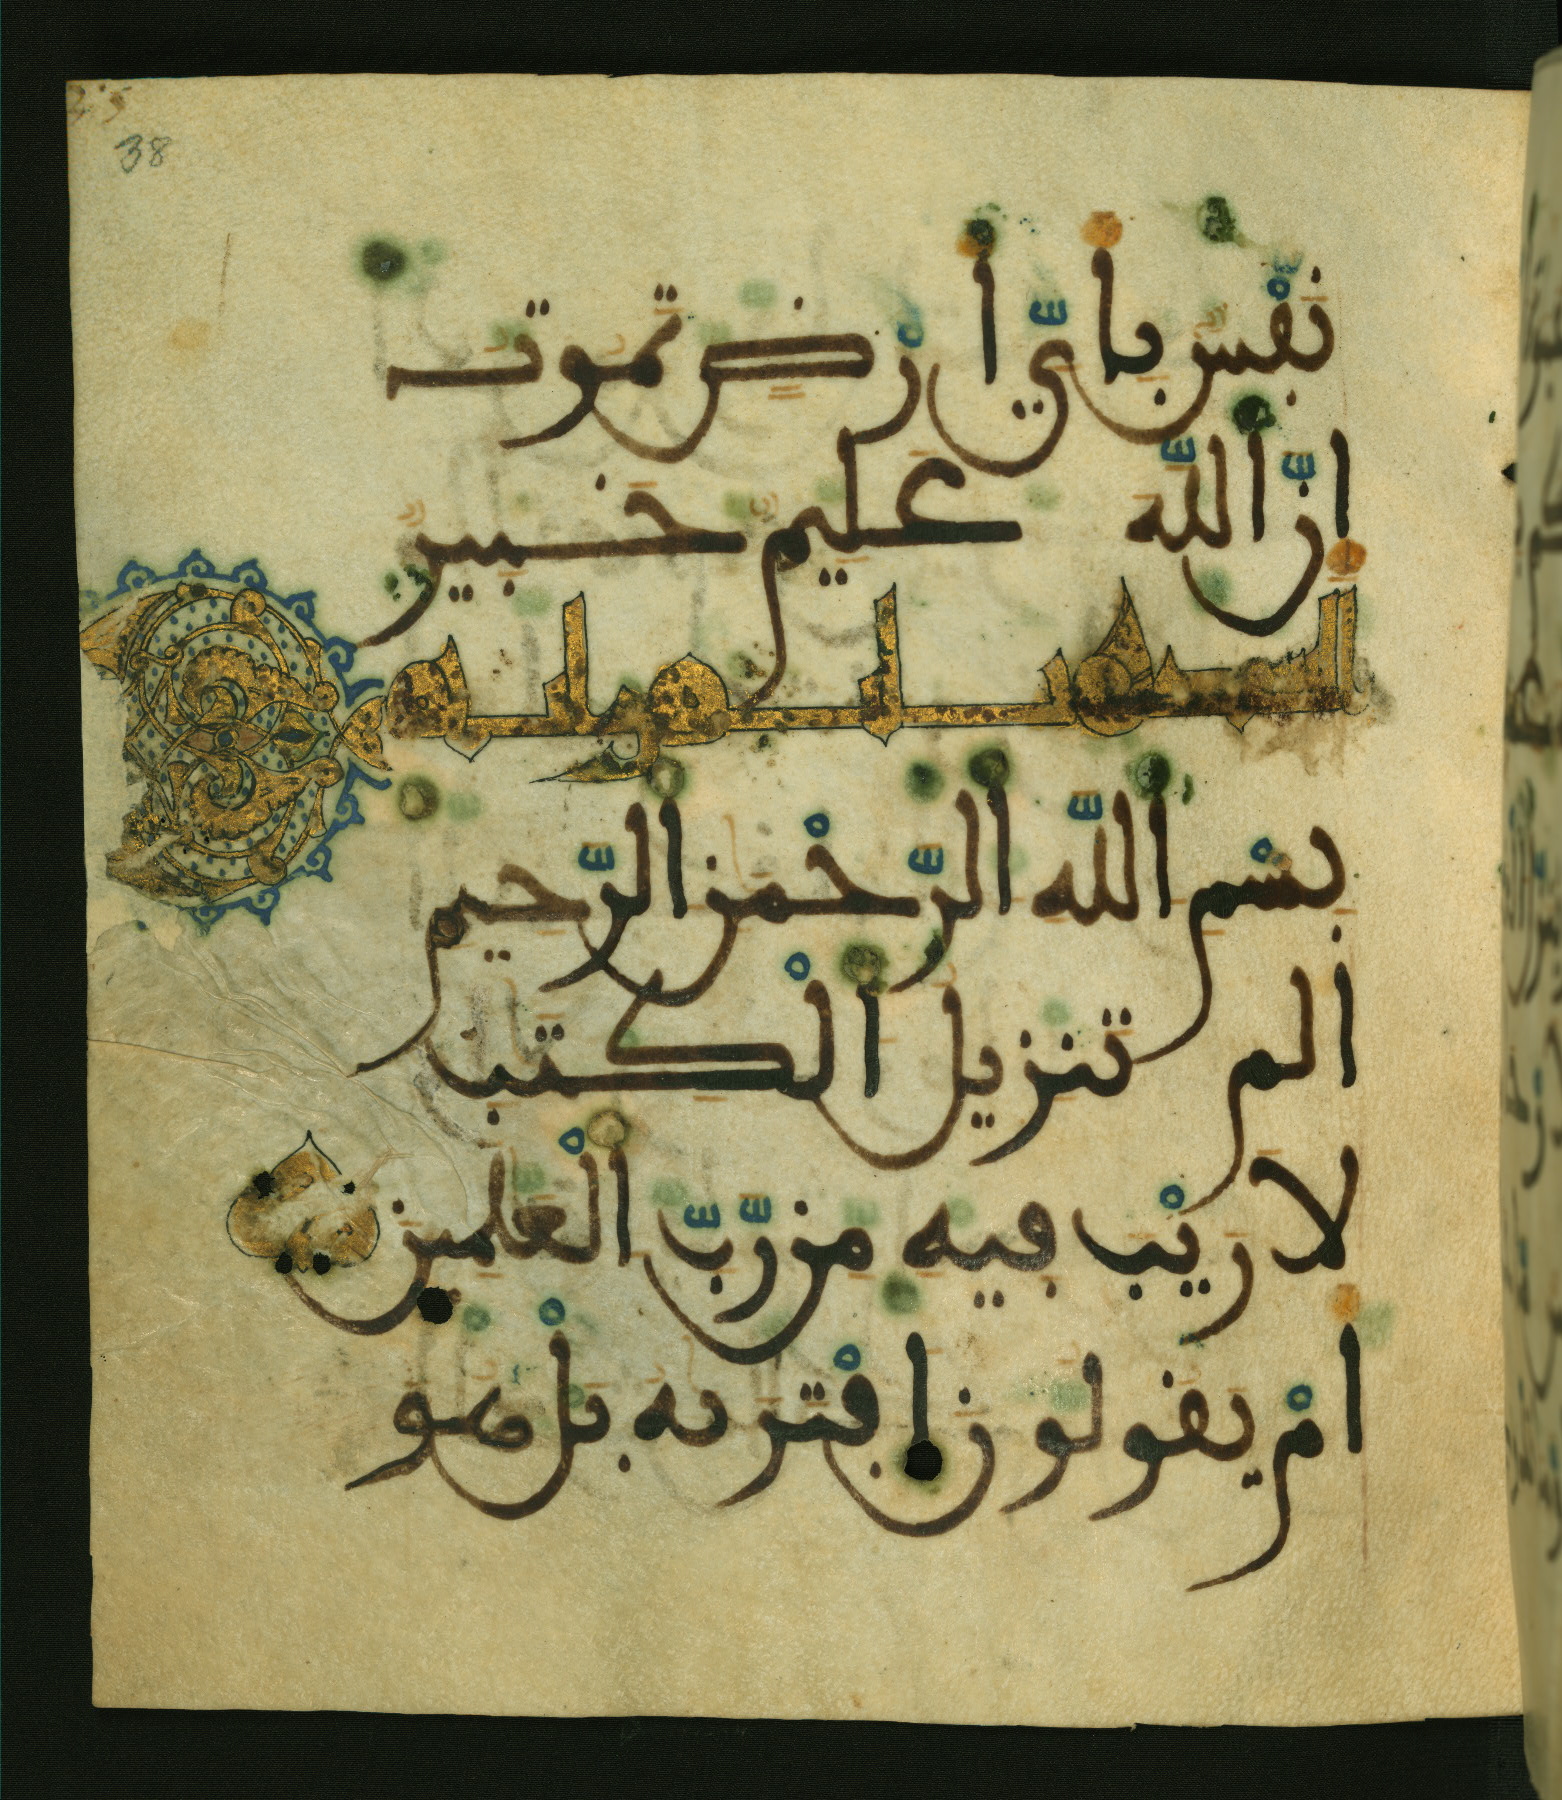 38
نفس باي ارض تموت
ان الله عليم خبير
السجدة
بسم الله الرحمن الرحيم
الم تنزيل الكتب
لا ريب فيه من رب العلمين
ام يقولون افتريه بل هو